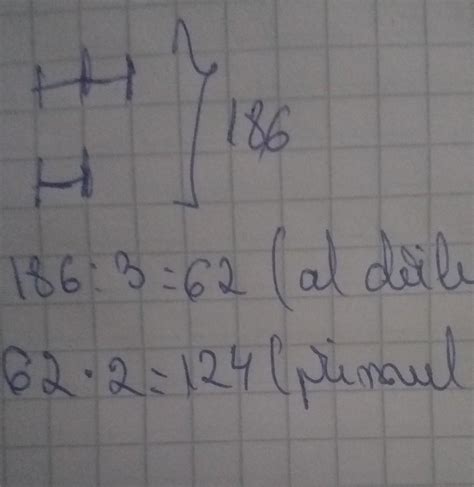 186
186:3=62 (al doile
62·2=124 (primul